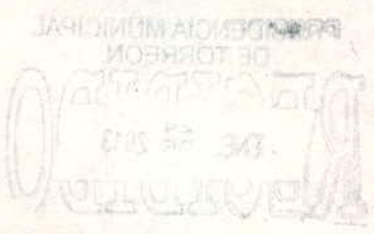 PRESIDENCIA MUNICIPAL
DE TORREON
RECIBIDO
ENE 2013